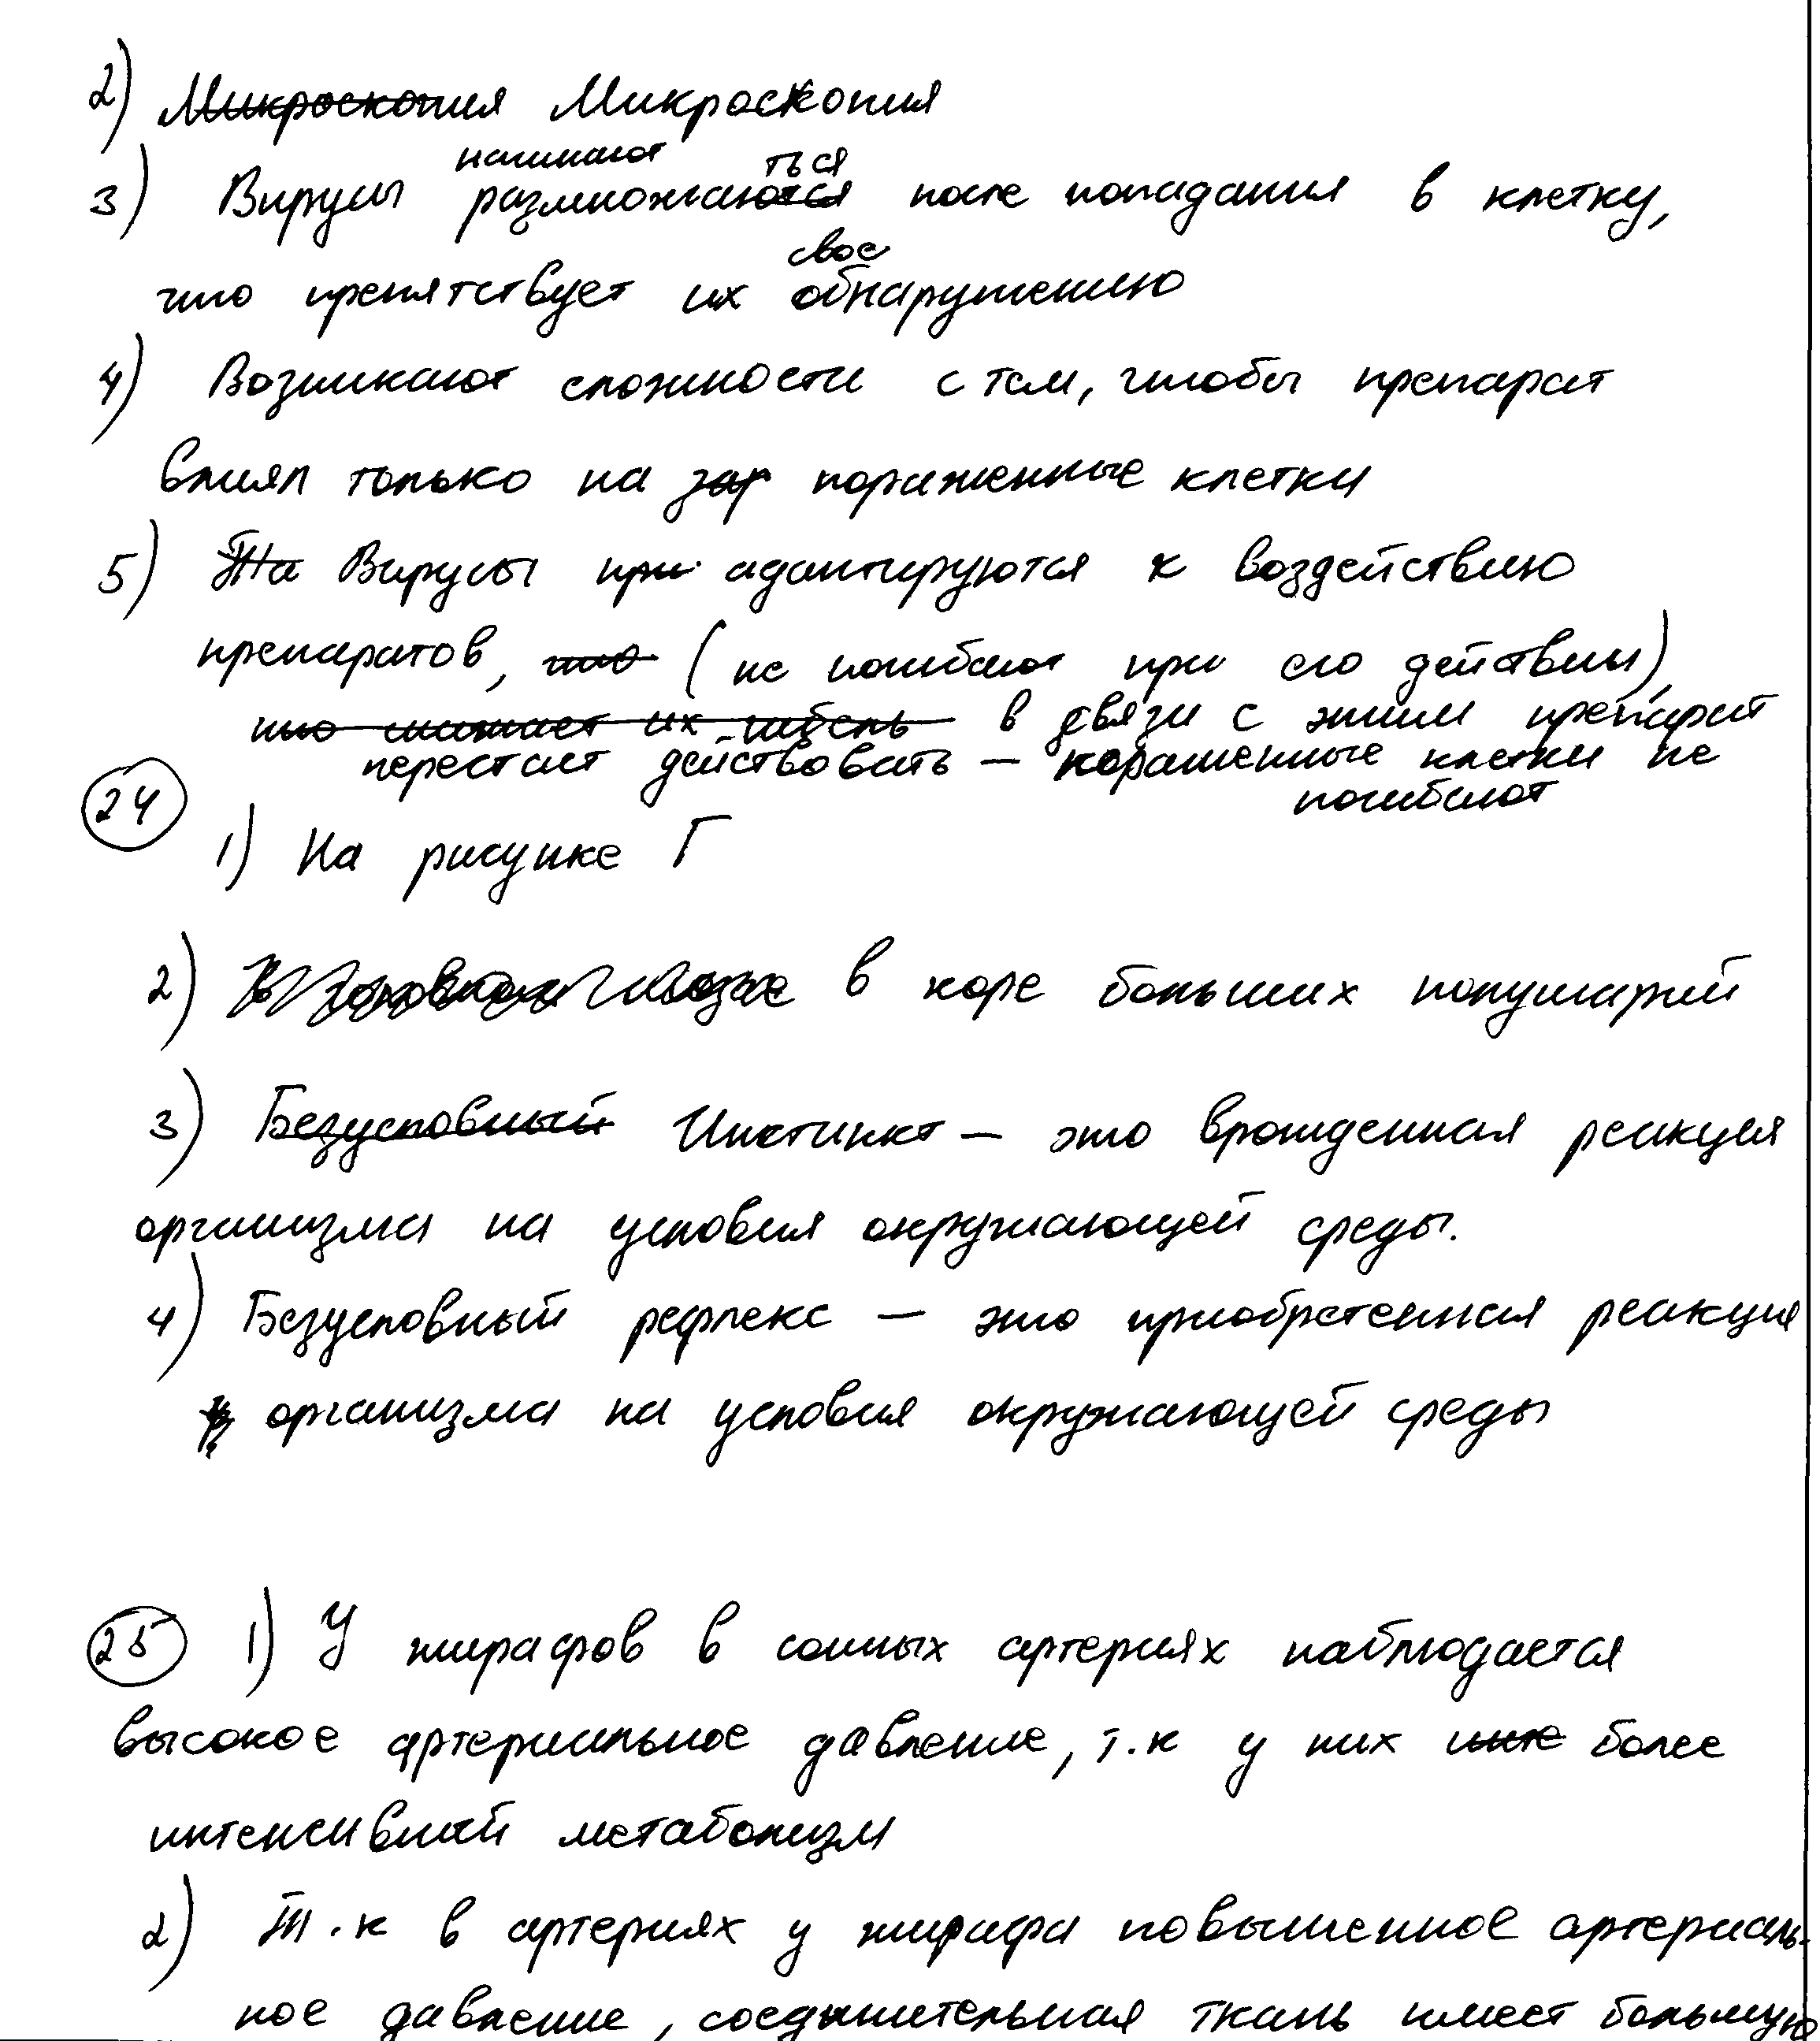 2) Микроскопия Микроскопия
начинают ться
3) Вирусы размножаются после попадания в клетку,
свое
что препятствует их обнаружению
4) Возникают сложности с тем, чтобы препарат
влиял только на зар пораженные клетки
5) На Вирусы при адаптируются к воздействию
препаратов, что (не погибают при его действии)
что снижает их гибель в связи с этим препарат
перестает действовать — пораженные клетки не
погибают
24
1) На рисунке Г
2) В головном мозге в коре больших полушарий
3) Безусловный Инстинкт — это врожденная реакция
организма на условия окружающей среды.
4) Безусловный рефлекс — это приобретенная реакция
организма на условия окружающей среды
25 1) У жирафов в сонных артериях наблюдается
высокое артериальное давление, т.к у них инте более
интенсивный метаболизм
2) Т.к в артериях у жирафа повышенное артериаль-
ное давление, соединительная ткань имеет большую